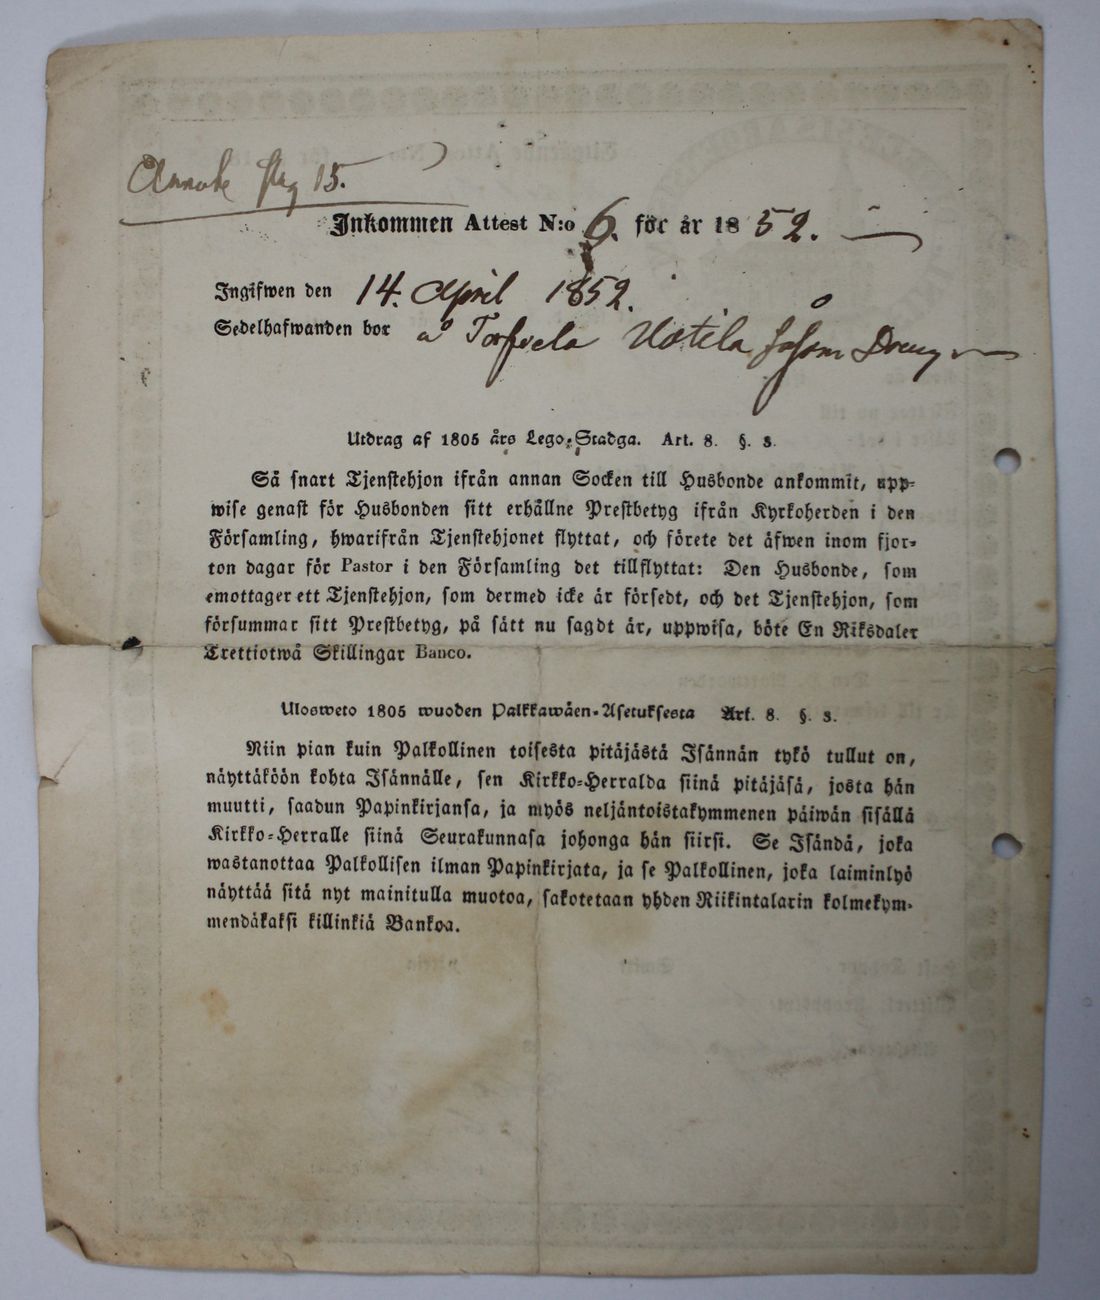 Annote pag 15.
Inkommen Attest N:o 6. för år 1852.
Ingifwen den 14. April 1852.
Sedelhafwanden bor å Torfvela Uotila såsom Dräng
Utdrag af 1805 års Lego-Stadga. Art. 8. §. 3.
Så snart Tjenstehjon ifrån annan Socken till Husbonde ankommit, upp-
wise genast för Husbonden sitt erhållne Prestbetyg ifrån Kyrkoherden i den
Församling, hwarifrån Tjenstehjonet flyttat, och förete det äfwen inom fjor-
ton dagar för Pastor i den Församling det tillflyttat: Den Husbonde, som
emottager ett Tjenstehjon, som dermed icke är försedt, och det Tjenstehjon, som
försummar sitt Prestbetyg, på sätt nu sagdt är, uppwisa, böte En Riksdaler
Trettiotwå Skillingar Banco.
Ulosweto 1805 wuoden Palkkawäen-Asetuksesta Art. 8. §. 3.
Niin pian kuin Palkollinen toisesta pitäjästä Isännän tykö tullut on,
näyttäköön kohta Isännälle, sen Kirkko-Herralda siinä pitäjäsä, josta hän
muutti, saadun Papinkirjansa, ja myös neljäntoistakymmenen päiwän sisällä
Kirkko-Herralle siinä Seurakunnasa johonga hän siirsi. Se Isändä, joka
wastanottaa Palkollisen ilman Papinkirjata, ja se Palkollinen, joka laiminlyö
näyttää sitä nyt mainitulla muotoa, sakotetaan yhden Riikintalarin kolmekym-
mendäkaksi killinkiä Bankoa.